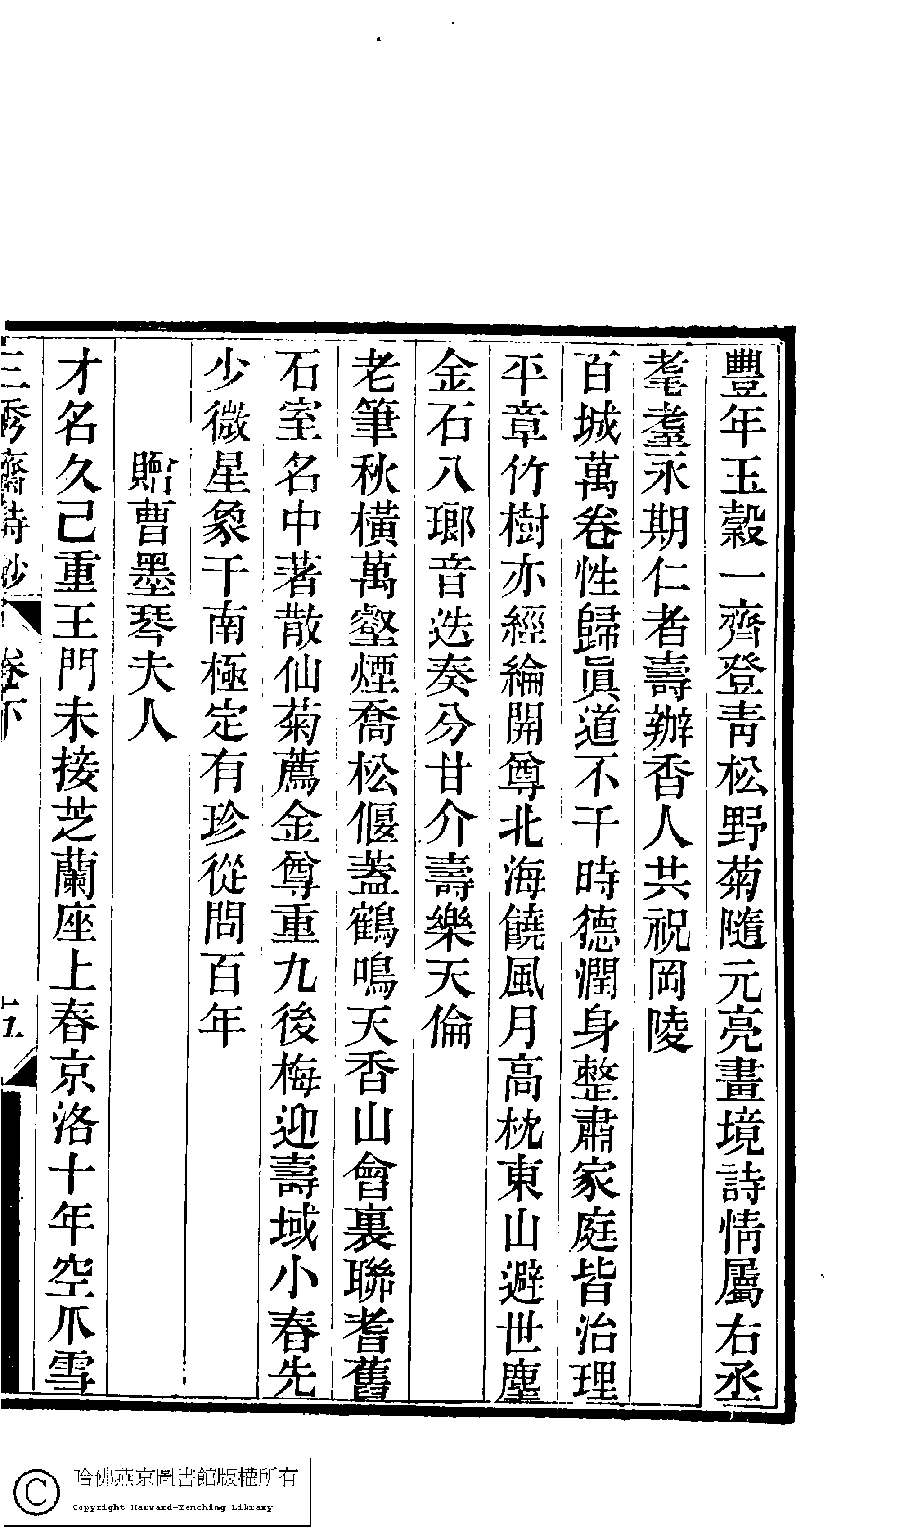 豐年玉穀一齊登青松野菊隨元亮畫境詩情屬右丞
耄耋永期仁者壽辦香人共祝岡陵
百城萬卷性歸眞道不干時德潤身整肅家庭皆治理
平章竹樹亦經綸開尊北海饒風月高枕東山避世塵
金石八瑯音迭奏分甘介壽樂天倫
老筆秋橫萬壑煙喬松偃蓋鶴鳴天香山會裏聯耆舊
石室名中著散仙菊薦金尊重九後梅迎壽域小春先
少微星象干南極定有珍從問百年
贈曹墨琴夫人
才名久己重王門未接芝蘭座上春京洛十年空爪雪
三秀齋詩鈔
卷下
五
哈佛燕京圖書館版權所有
Copyright Harvard-Yenching Library